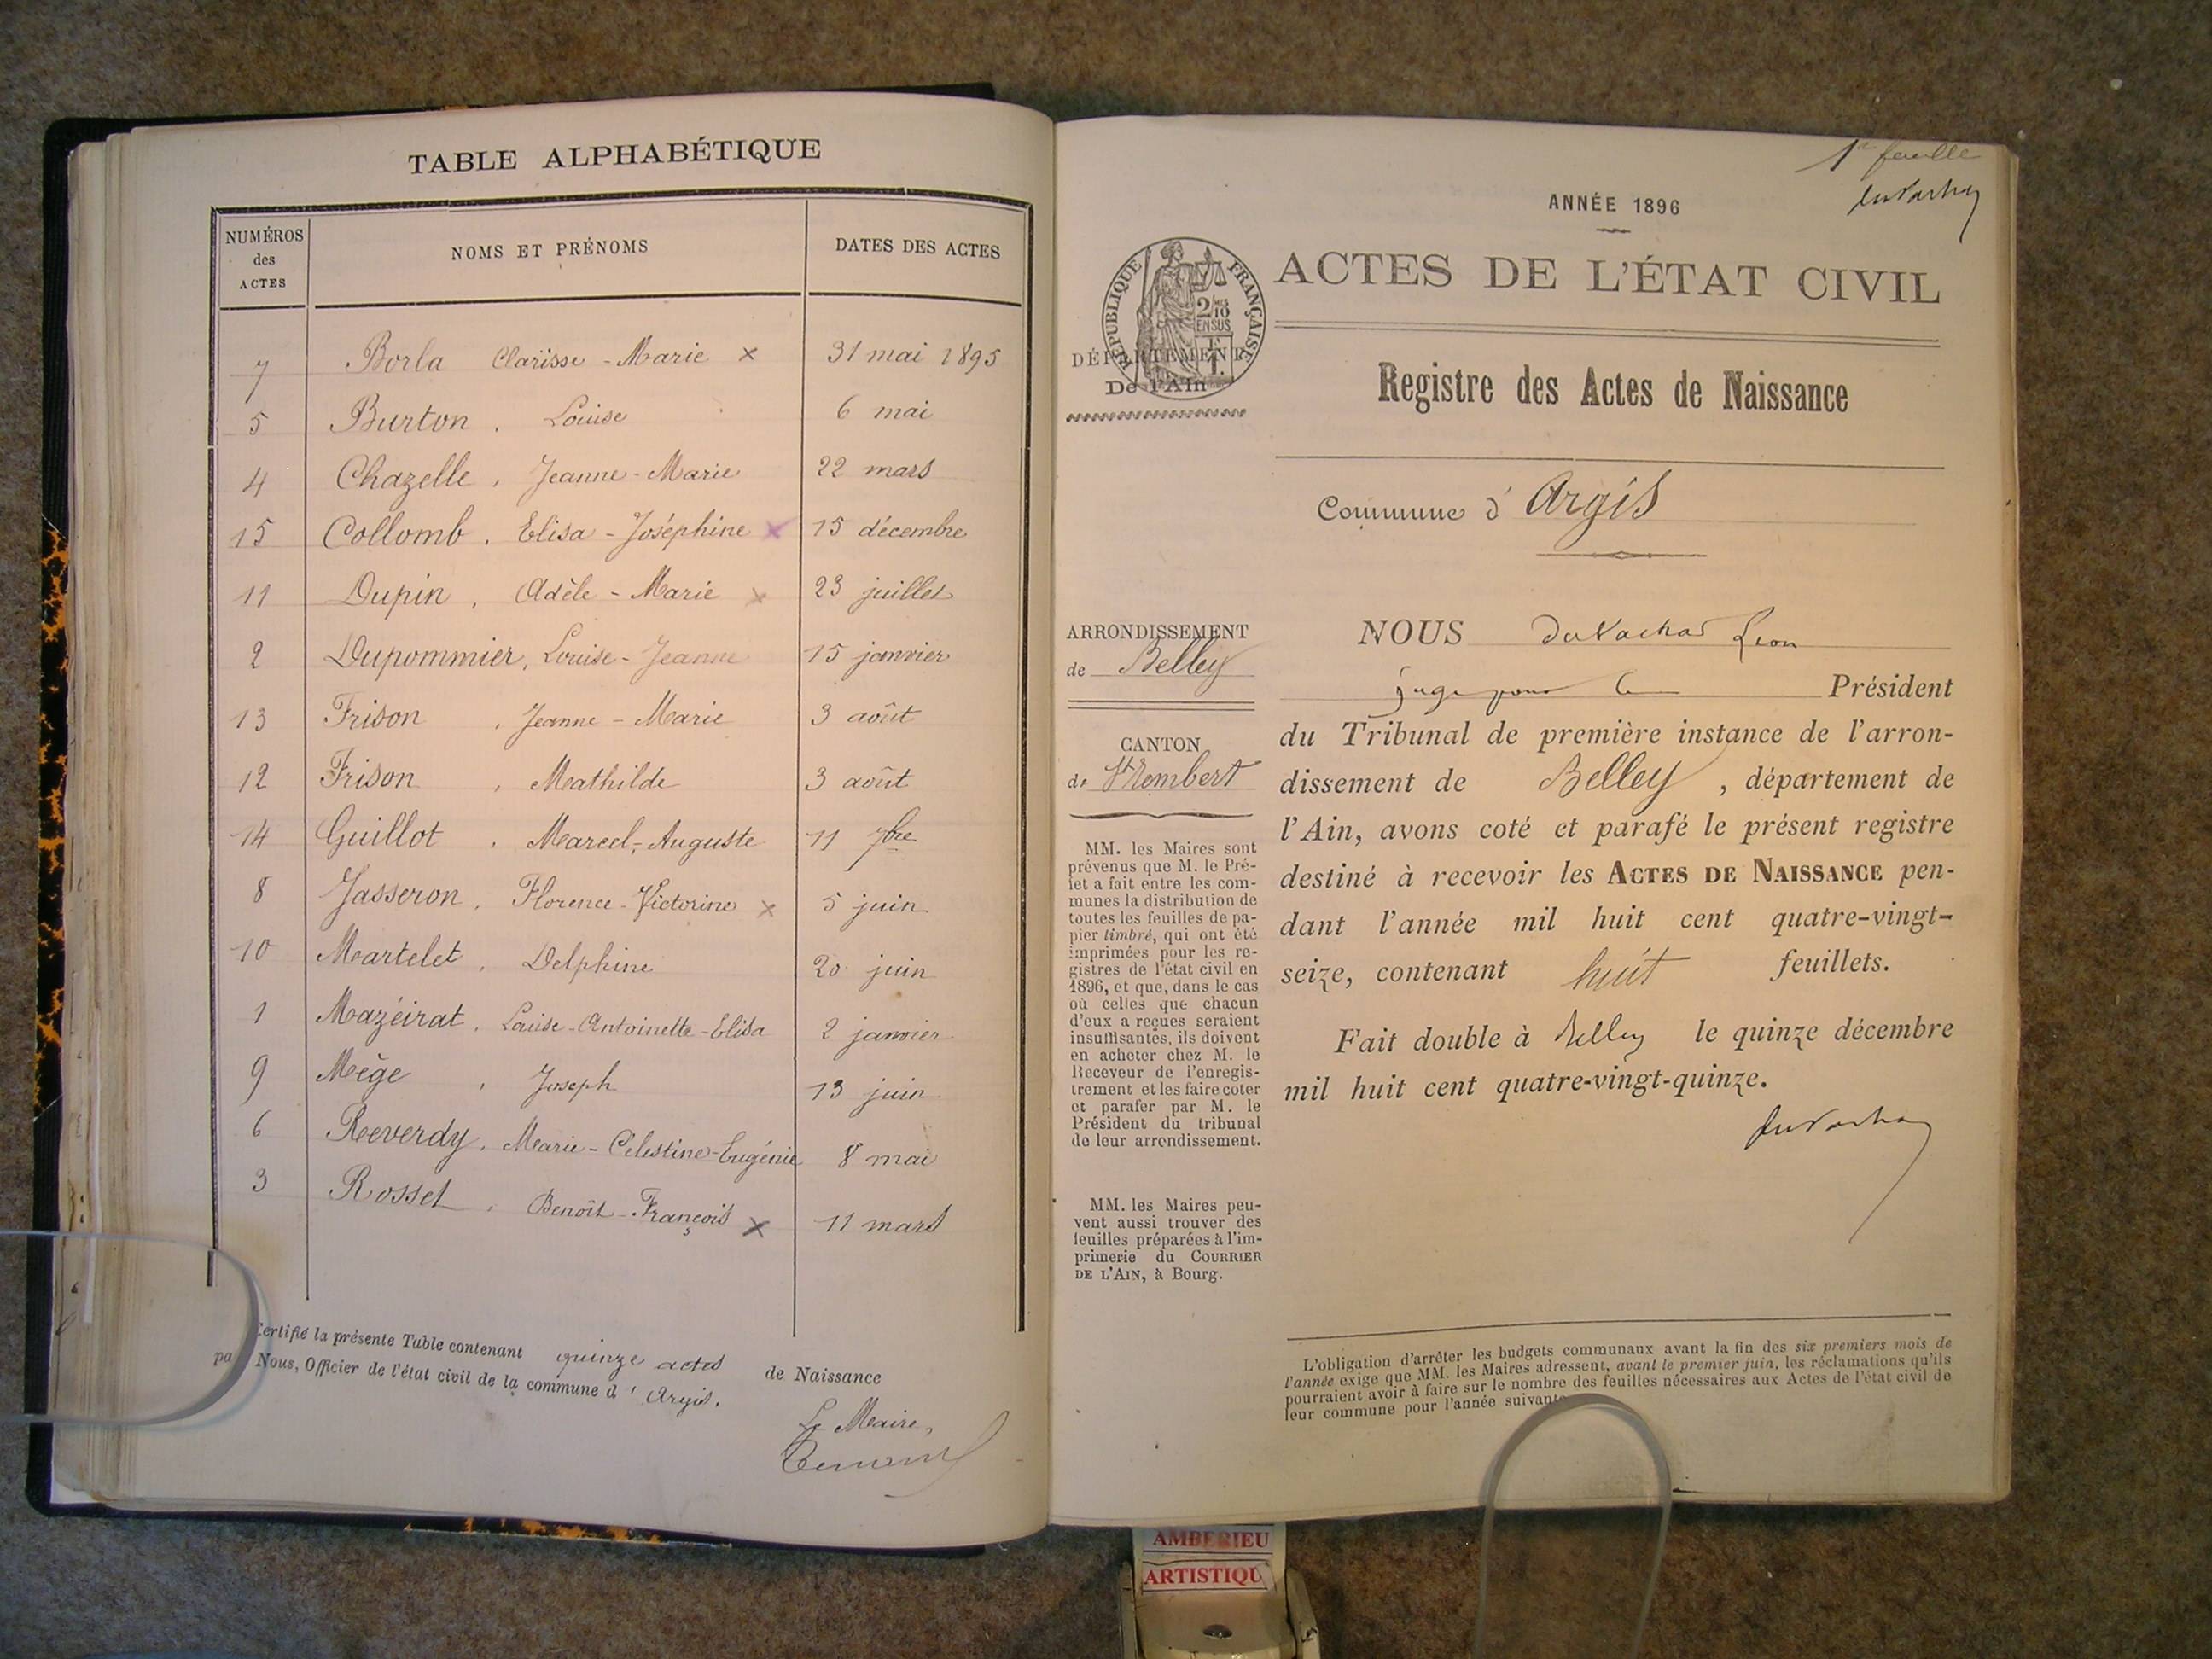 TABLE ALPHABÉTIQUE
NUMÉROS
des
ACTES
NOMS ET PRÉNOMS
DATES DES ACTES
7 Borla Clarisse - Marie × 31 mai 1895
5 Burton, Louise 6 mai
4 Chazelle, Jeanne - Marie 22 mars
15 Collomb, Elisa - Joséphine × 15 décembre
11 Dupin, Adèle - Marie × 23 juillet
2 Dupommier, Louise - Jeanne 15 janvier
13 Frison, Jeanne - Marie 3 août
12 Frison, Mathilde 3 août
14 Guillot, Marcel-Auguste 11 7bre
8 Jasseron, Florence-Victorine × 5 juin
10 Martelet, Delphine 20 juin
1 Mazéirat, Louise-Antoinette-Elisa 2 janvier
9 Mège, Joseph 13 juin
6 Reverdy, Marie-Célestine-Eugénie 8 mai
3 Rosset, Benoît-François × 11 mars
Certifié la présente Table contenant quinze actes de Naissance
pa Nous, Officier de l'état civil de la commune d'Argis.
Le Maire,
1re feuille
ANNÉE 1896
ACTES DE L'ÉTAT CIVIL
RÉPUBLIQUE FRANÇAISE
2/10
EN SUS
DÉPARTEMENT
De l'Ain
Registre des Actes de Naissance
Commune d'Argis
ARRONDISSEMENT
de Belley
CANTON
de St Rambert
MM. les Maires sont
prévenus que M. le Pré-
fet a fait entre les com-
munes la distribution de
toutes les feuilles de pa-
pier timbré, qui ont été
imprimées pour les re-
gistres de l'état civil en
1896, et que, dans le cas
où celles que chacun
d'eux a reçues seraient
insuffisantes, ils doivent
en acheter chez M. le
Receveur de l'enregis-
trement et les faire coter
et parafer par M. le
Président du tribunal
de leur arrondissement.
MM. les Maires peu-
vent aussi trouver des
feuilles préparées à l'im-
primerie du COURRIER
DE L'AIN, à Bourg.
NOUS Léon
juge pour le Président
du Tribunal de première instance de l'arron-
dissement de Belley, département de
l'Ain, avons coté et parafé le présent registre
destiné à recevoir les ACTES DE NAISSANCE pen-
dant l'année mil huit cent quatre-vingt-
seize, contenant huit feuillets.
Fait double à Belley le quinze décembre
mil huit cent quatre-vingt-quinze.
L'obligation d'arrêter les budgets communaux avant la fin des six premiers mois de
l'année exige que MM. les Maires adressent, avant le premier juin, les réclamations qu'ils
pourraient avoir à faire sur le nombre des feuilles nécessaires aux Actes de l'état civil de
leur commune pour l'année suivante
AMBERIEU
ARTISTIQU